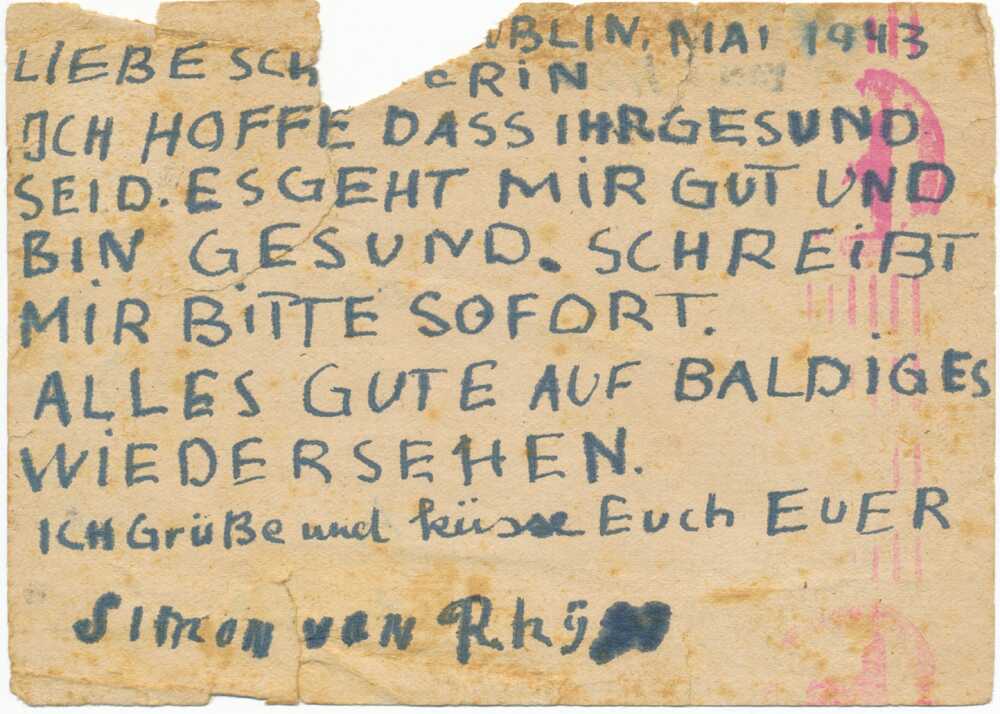 UBLIN, MAI 1943
LIEBE SCH ERIN
ICH HOFFE DASS IHR GESUND
SEID. ES GEHT MIR GUT UND
BIN GESUND. SCHREIBT
MIR BITTE SOFORT.
ALLES GUTE AUF BALDIGES
WIEDERSEHEN.
ICH Grüße und küsse Euch EUER
Simon van Rhÿ